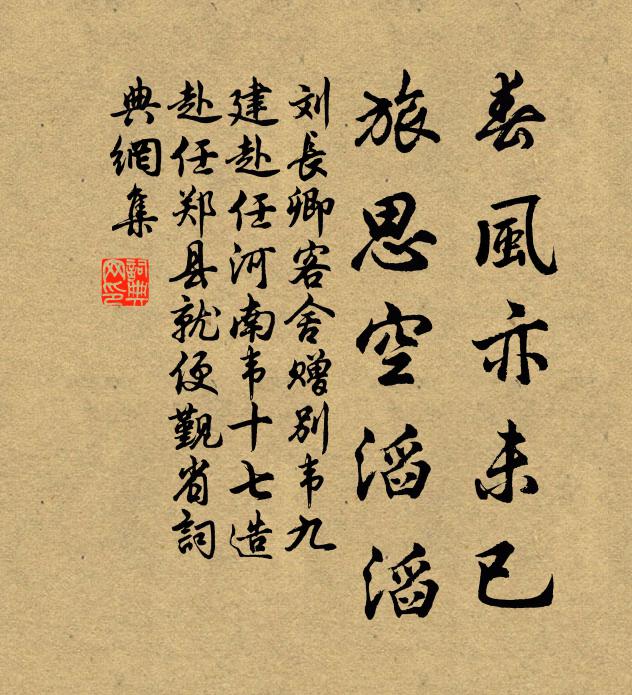 春風亦未已
旅思空滔滔
刘長卿客舍赠别韦九
建赴任河南韦十七造
赴任郑县就便觐省詞
典網集
詞典
网印